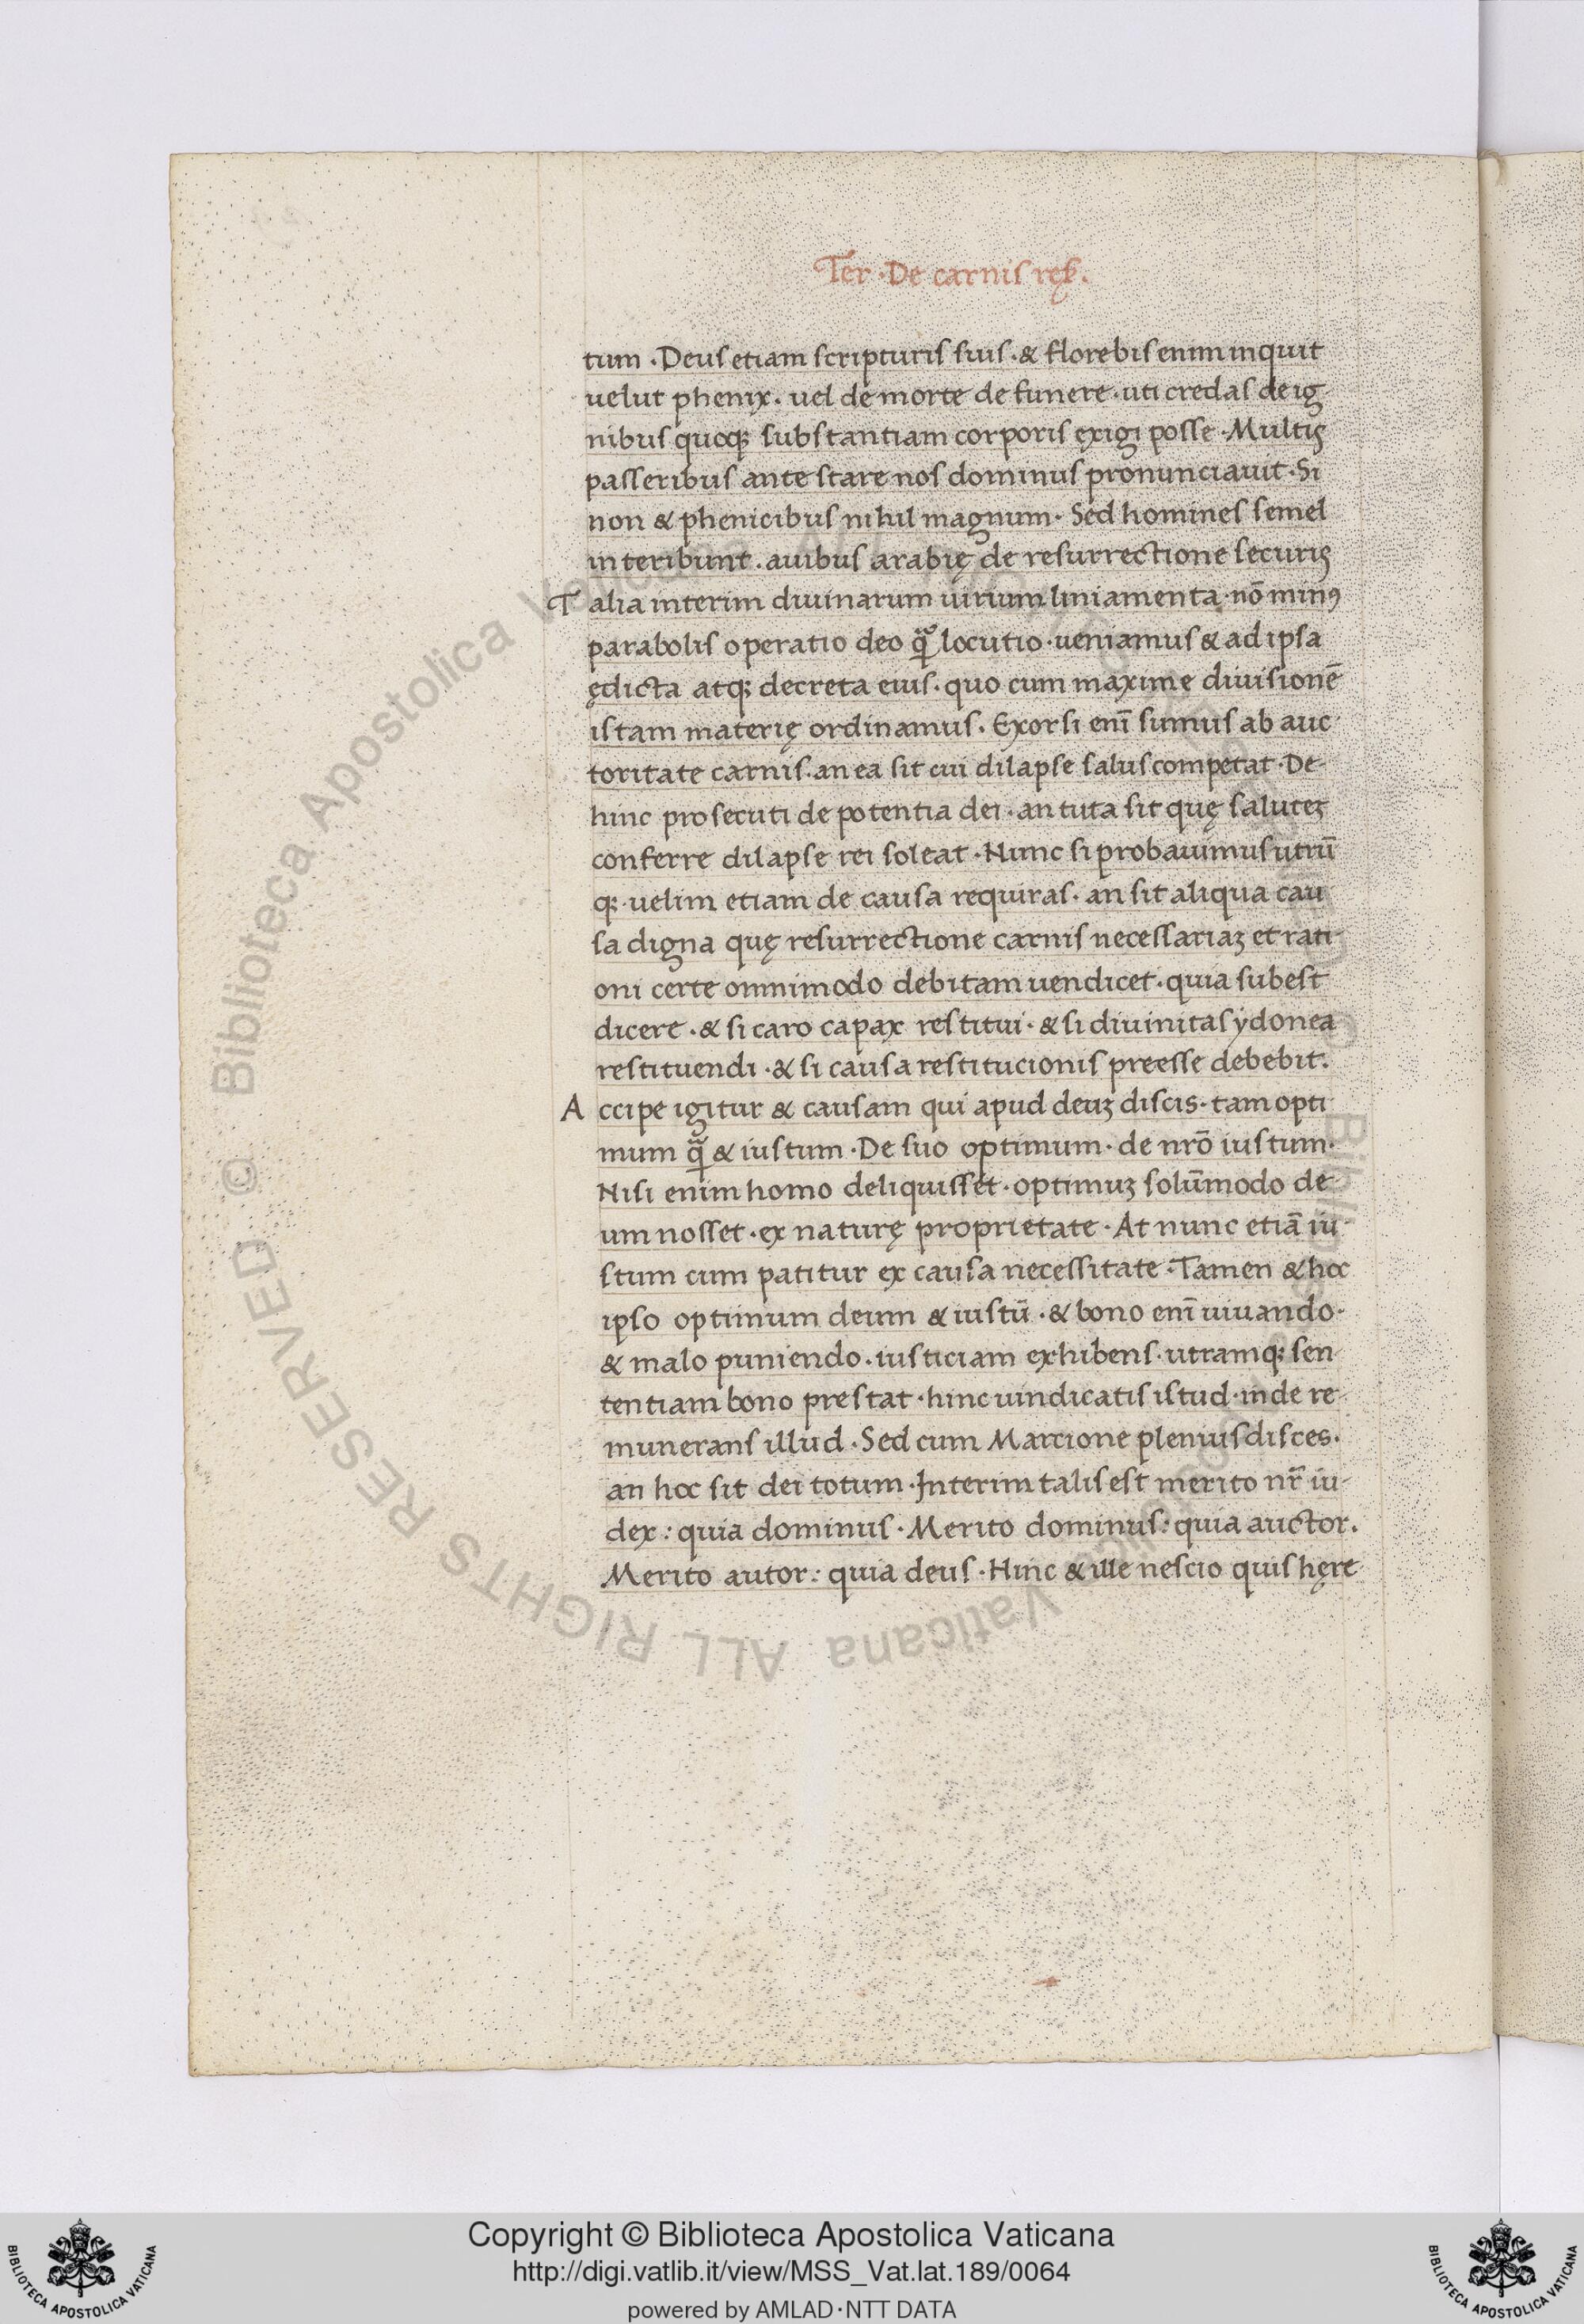 Ter · De carnis ręß.
tum · Deus etiam scripturis suis · & florebis enim inquit
uelut phenix . uel de morte de funere · uti credas de ig
nibus quoqꝫ substantiam corporis exigi posse · Multis
passeribus ante stare nos dominus pronunciauit · Si
non & phenicibus nihil magnum · Sed homines semel
interibunt . auibus arabię de resurrectione securis
Talia interim diuinarum uirium liniamenta · nō minꝰ
parabolis operatio deo q̃ locutio · ueniamus & ad ipsa
ędicta atqꝫ decreta eius · quo cum maxime diuisionē
istam materię ordinamus . Exorsi enī sumus ab auc
toritate carnis . an ea sit cui dilapse salus competat · De
hinc prosecuti de potentia dei · an tuta sit quę saluteꝫ
conferre dilapse rei soleat · Nunc si probauimus utrū
qꝫ · uelim etiam de causa requiras . an sit aliqua cau
sa digna quę resurrectione carnis necessariaꝫ et rati
oni certe omnimodo debitam uendicet · quia subest
dicere . & si caro capax restitui · & si diuinitas ydonea
restituendi · & si causa restitucionis preesse debebit .
Accipe igitur & causam qui apud deuꝫ discis · tam opti
mum q̃ & iustum · De suo optimum · de nrō iustum ·
Nisi enim homo deliquisset · optimuꝫ solūmodo de
um nosset · ex naturę proprietate · At nunc etiā iu
stum cum patitur ex causa necessitate · Tamen & hoc
ipso optimum deum & iustū · & bono enī uiuando ·
& malo puniendo . iusticiam exhibens · utramqꝫ sen
tentiam bono prestat · hinc uindicatis istud · inde re
munerans illud · Sed cum Marcione plenius disces .
an hoc sit dei totum · Interim talis est merito nr̄ iu
dex : quia dominus · Merito dominus : quia auctor .
Merito autor : quia deus · Hinc & ille nescio quis hęre
Copyright © Biblioteca Apostolica Vaticana
http://digi.vatlib.it/view/MSS_Vat.lat.189/0064
powered by AMLAD·NTT DATA
BIBLIOTECA APOSTOLICA VATICANA
BIBLIOTECA APOSTOLICA VATICANA